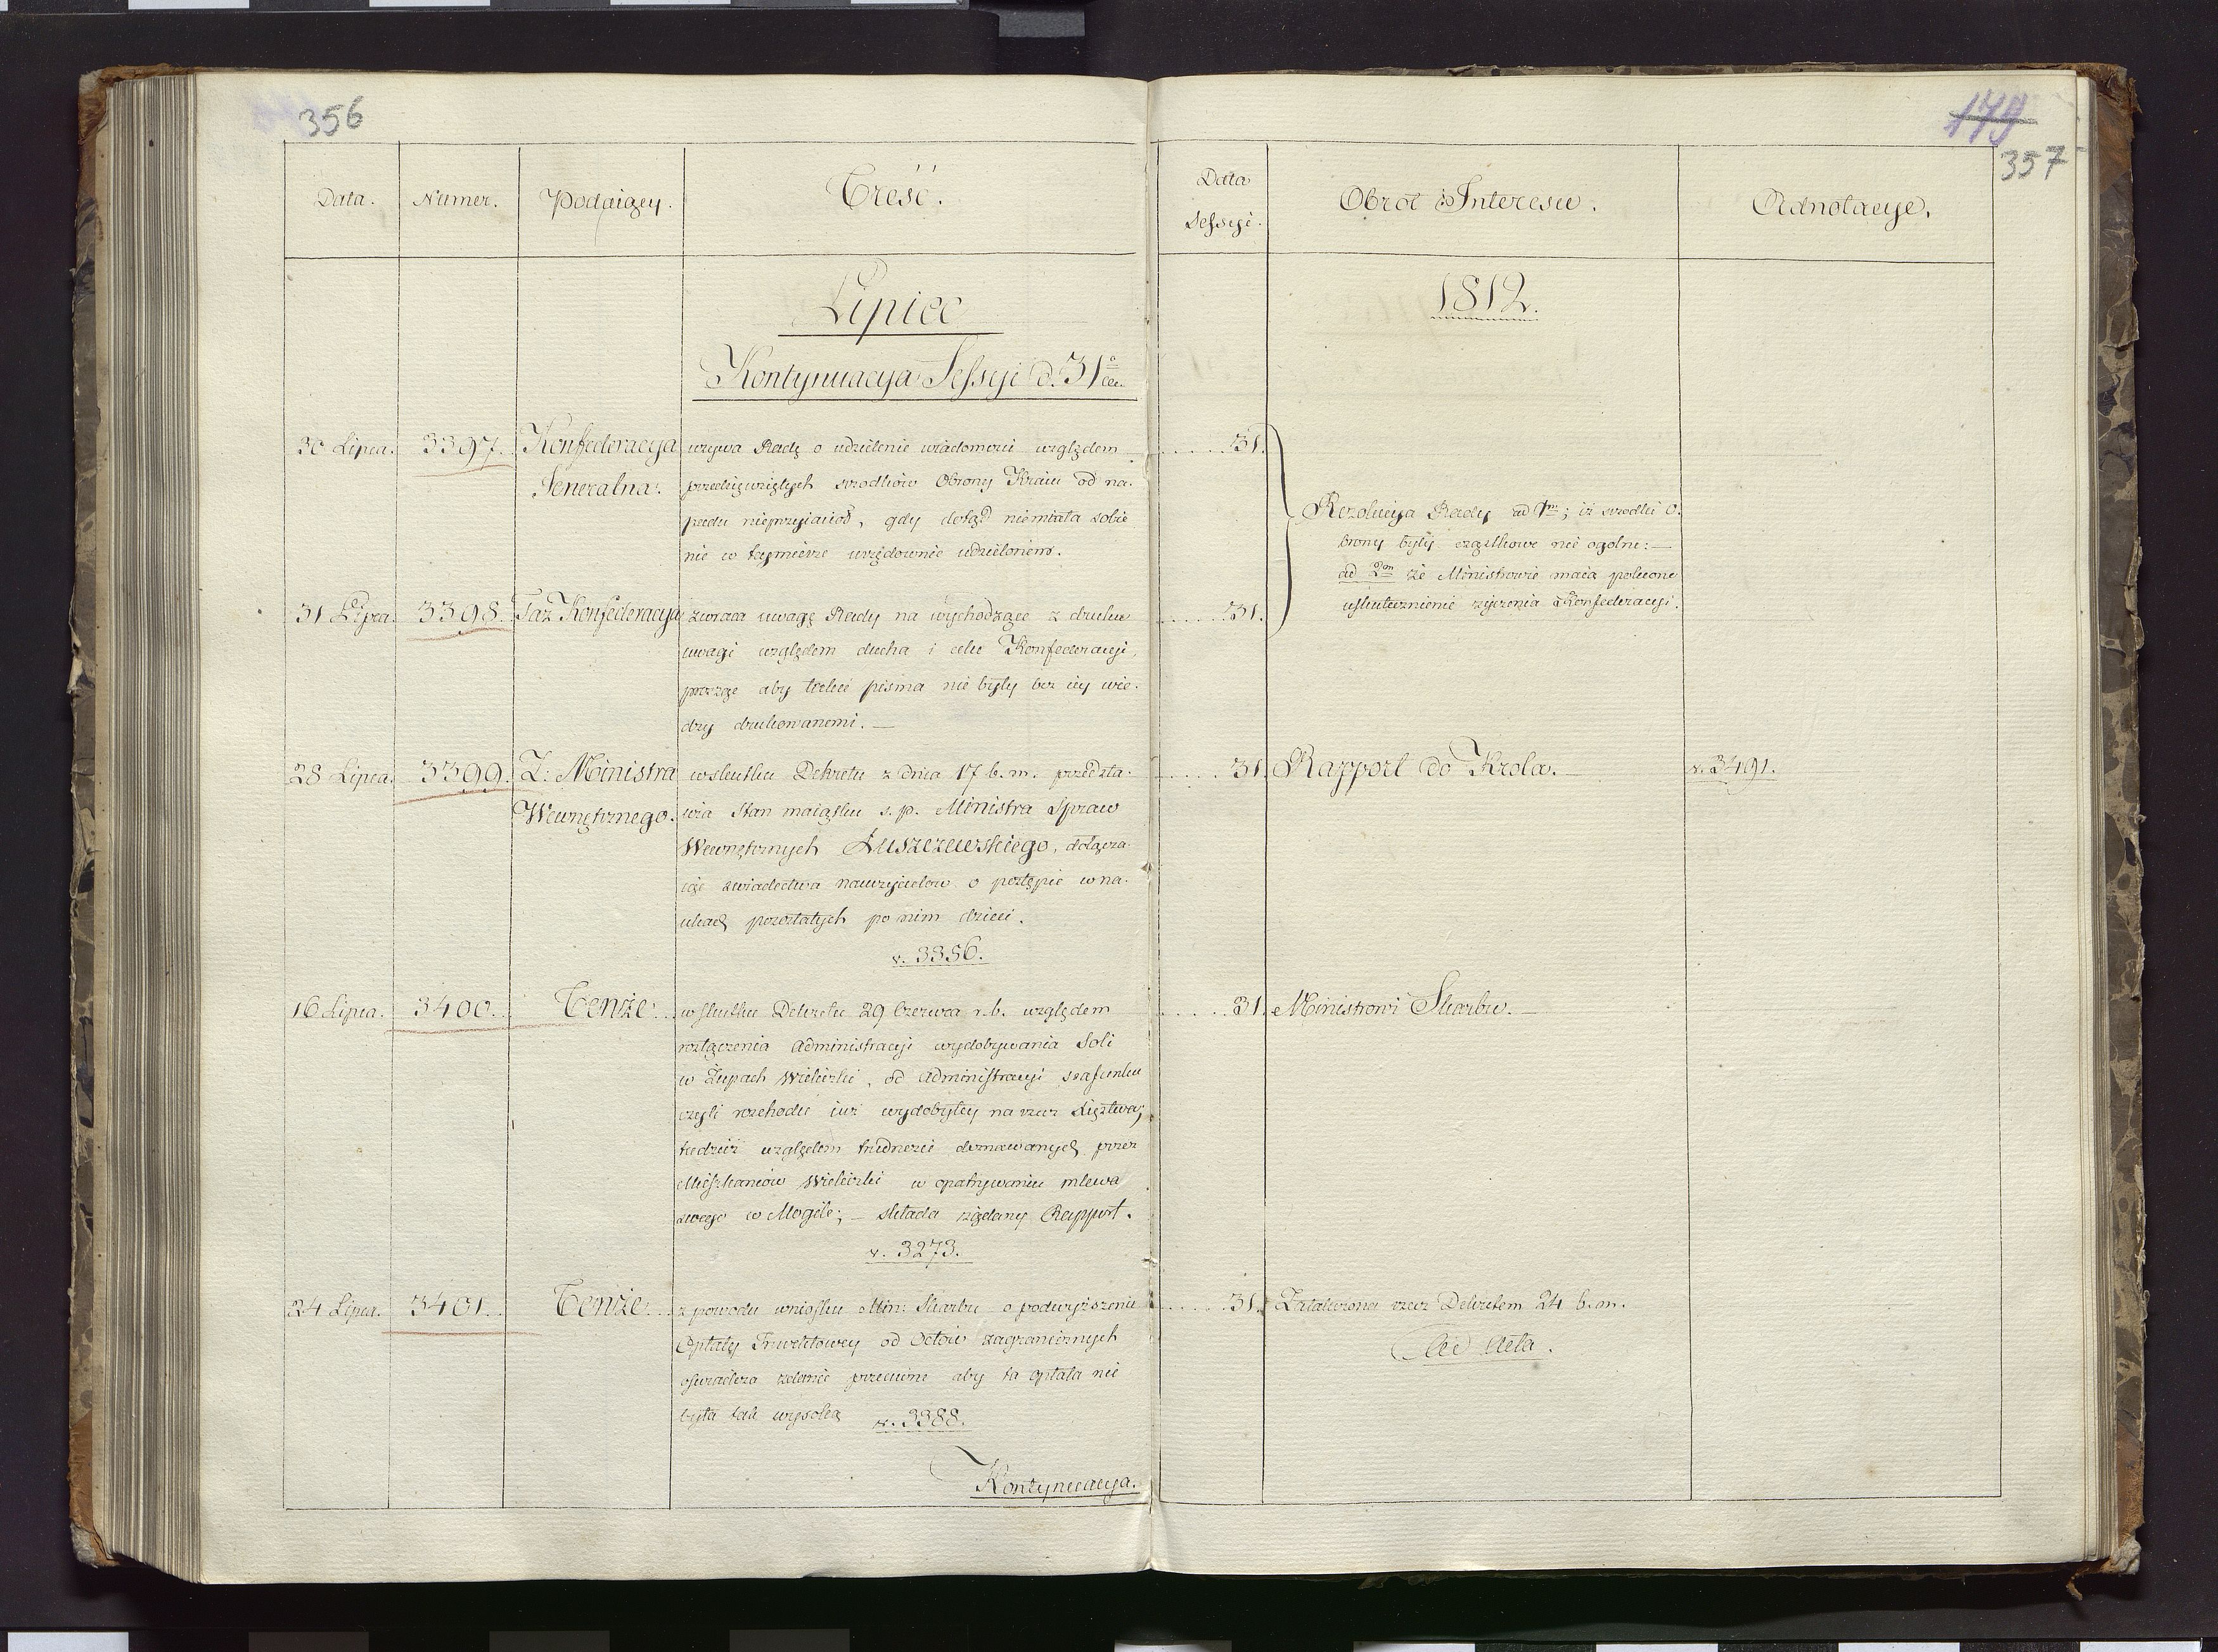 356
179
357
Data.
Numer.
Podaiący.
Treść.
Data
Sessyi.
Obrot Interesu.
Adnotacye.
Lipiec
1812.
Kontynuacya Sessyi d. 31
30 Lipca. 3397. Konfederacya
Generalna.
wzywa Radę o udzielenie wiadomości względem
przedsięwziętych srodków Obrony Kraiu od na-
padu nieprzyiaciół, gdy dotąd niemiała sobie
nic w tey mierze urzędownie udzielonem.
31.
Rezolucya Rady ad 1m; iż srodki O-
brony były cząstkowe nie ogolne: —
ad 2m że Ministrowie maią polecone
uskutecznienie życzenia Konfederacyi.
31 Lipca. 3398. Taż Konfederacya
zwraca uwagę Rady na wychodzące z druku
uwagi względem ducha i celu Konfederacyi,
prosząc aby takie pisma nie były bez iey wie-
dzy drukowanemi. —
31.
28 Lipca. 3399. Z: Ministra
Wewnętrznego.
wskutku Dekretu z dnia 17 b. m. przedsta-
wia Stan maiątku s. p. Ministra Spraw
Wewnętrznych Łuszczewskiego, dołącza-
iąc świadectwa nauczycielow o postępie w na-
ukach pozostałych po nim dzieci.
v. 3356.
31. Rapport do Krola. —
v. 3491.
16 Lipca. 3400. Tenże.
w skutku Dekretu 29 Czerwca r. b. względem
rozłączenia Administracyi wydobywania Soli
w Żupach Wieliczki, od Administracyi szafunku
czyli rozchodu iuż wydobytey na rzecz Xięztwa;
tudzież względem trudności doznawanych przez
Mieszkańców Wieliczki w opatrywaniu mlewa
swego w Mogile; — składa żądany Rapport.
v. 3273.
31. Ministrowi Skarbu. —
24 Lipca. 3401. Tenże.
z powodu wniosku Min: Skarbu o podwyższeniu
Opłaty od Octów zagranicznych
oświadcza zdanie przeciwne aby ta opłata nie
była tak wysoką v. 3388.
31. Załatwiona rzecz Dekretem 24 b. m.
Ad Acta.
Kontynuacya.